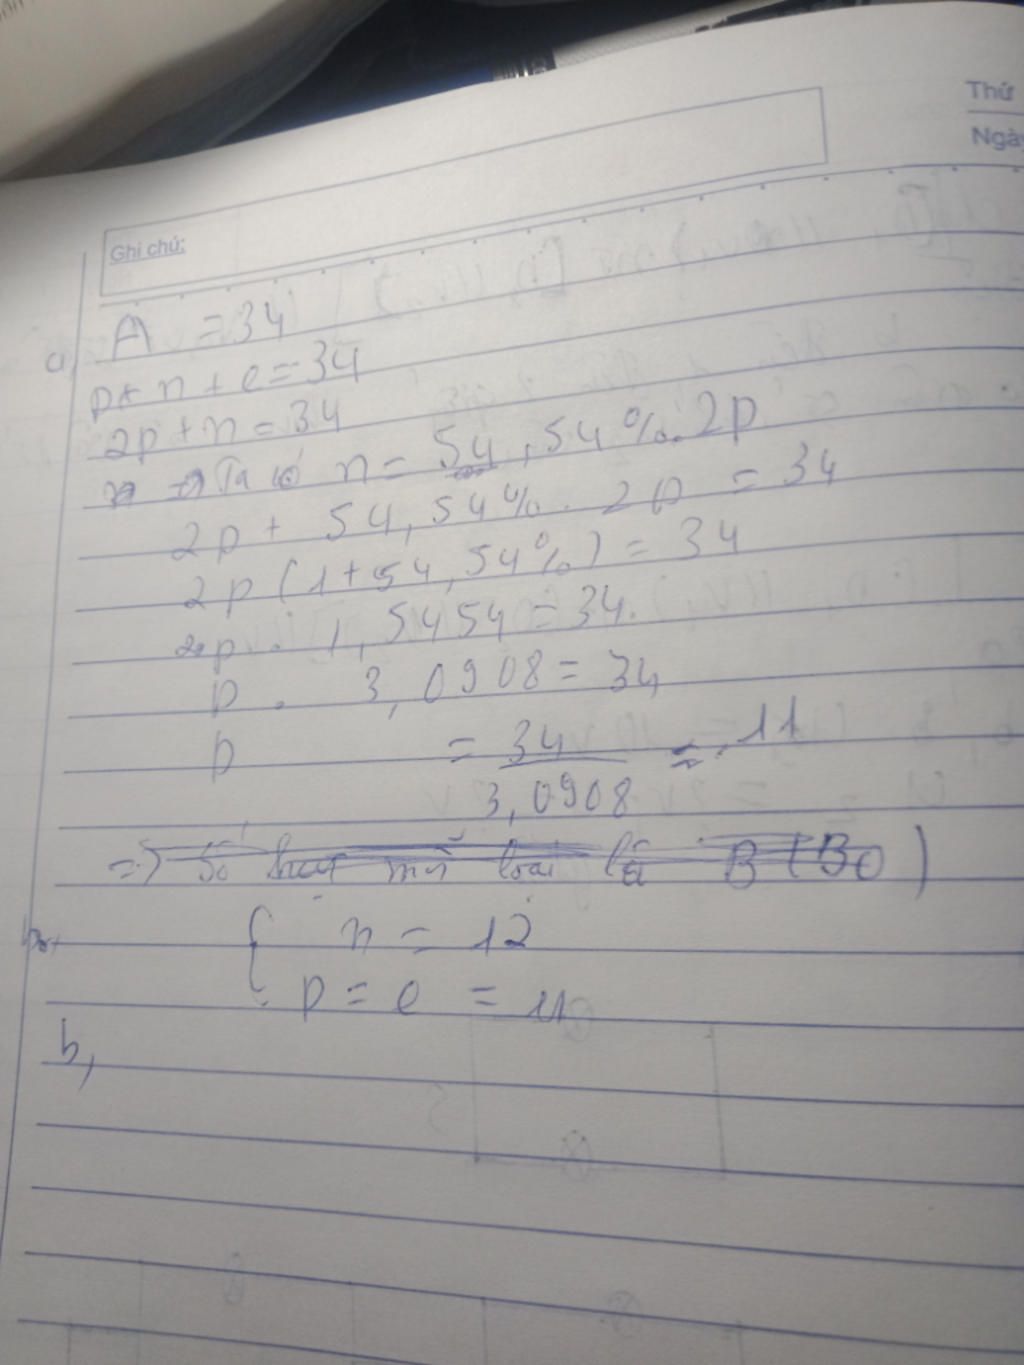 Thứ
Ngày
Ghi chú:
a, A = 34
p + n + e = 34
2p + n = 34
Ta có n = 54,54%.2p
2p + 54,54%.2p = 34
2p (1 + 54,54%) = 34
2p . 1,5454 = 34.
p . 3,0908 = 34
p = 34 / 3,0908 ≈ 11
=> Số loại là B (B0)
{ n = 12
p = e = 11
b,